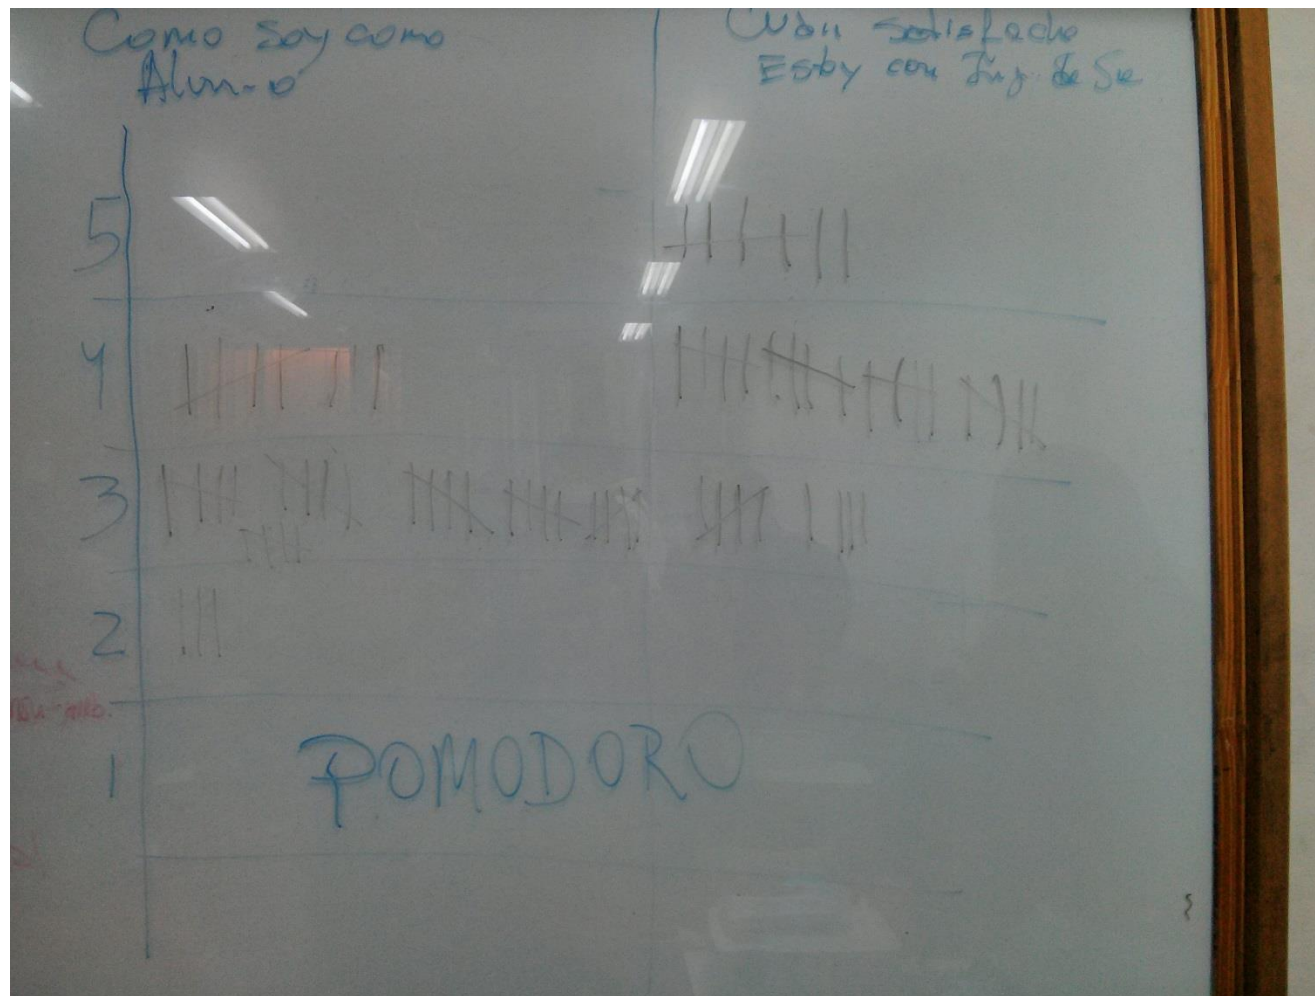 Como soy como
Alumno
Cuán satisfecho
Estoy con Ing. de Sw
5
4
3
2
1
POMODORO